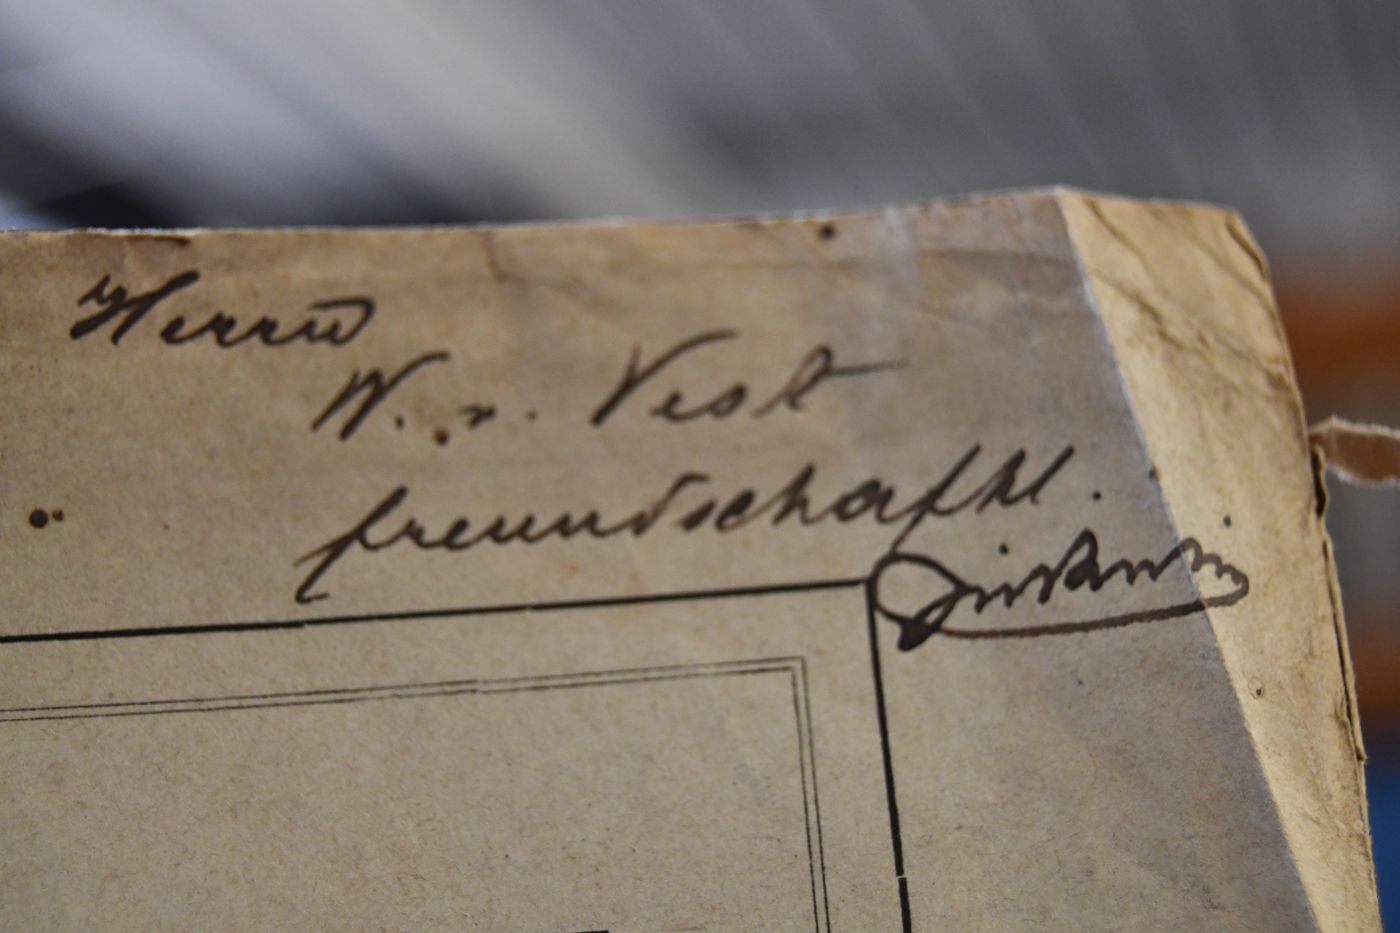 Herrn
W. v. Vest
freundschaftl.